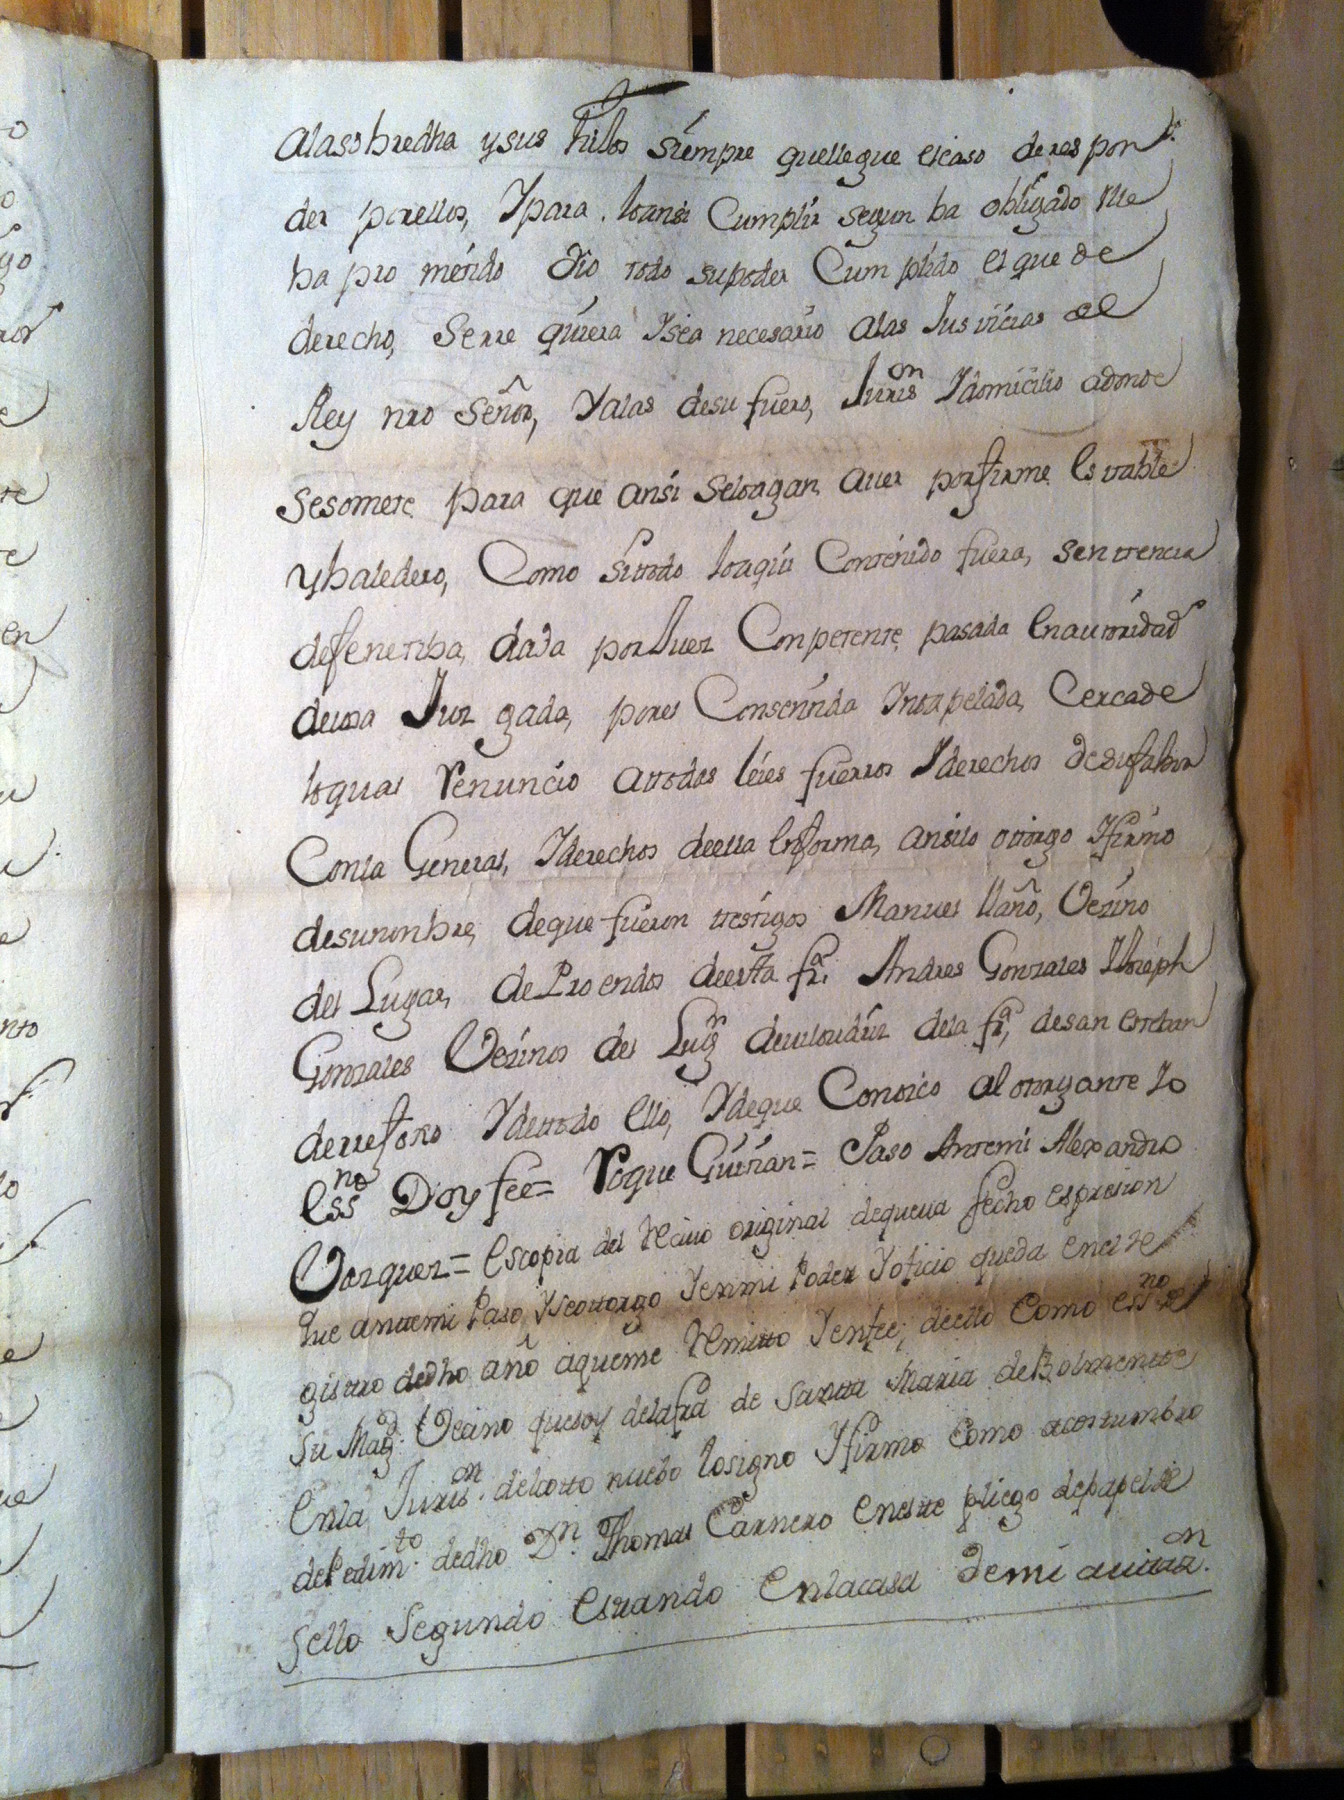 alasobredha ysus hilos siempre quellegue elcaso derespon
der porellos, Ypara loansi Cumplir segun ha obligado Me
ha prometido dio todo supoder Cumplido el que de
derecho, Serre quiera Isea necesario alas Justicias del
Rey nro Señor, Yalas desu fuero, Juris.on Ydomicilio adonde
sesomete para que ansi seloagan auer porfirme Estable
yhaledero, Como sitodo loaqui Contenido fuera, sentencia
defenetiba, dada porJuez Conpetente pasada Enautoridad
decosa Juzgada, pores Consentida Inoapelada, Cercade
loqual renuncio atodas leies fuerros Yderechos desufabor
Conla General, Yderechos deella Enforma, ansilo otorgo Yfirmo
desunonbre, deque fueron testigos Manuel llaño, Vezino
del Lugar, deProendos deesta fra. Andres Gonzales YJoseph
Gonzales Vezinos del Lugr de dela fra, desan esteban
Ydetodo Ello, Ydeque Conozco alotorgante Yo
Essno Doyfee= Roque Guitian= Paso Antemi Alexandro
Vazquez= Escopia del original dequeua fecho espresion
Que antemi Paso, Yseotorgo Yenmi Poder Yoficio queda enelRe
gistro dedho año aqueme Remitto Yenfee, deello Como essno de
su Magd. Vecino quesoy delafra de Santa Maria deBolmente
Enla Juris.on delcoto nuebo losigno Yfirmo Como acostumbro
dePedimto. dedho Dn. Thomas Carnero Eneste pliego depapelde
sello Segundo Estando Enlacasa demi auitazon.